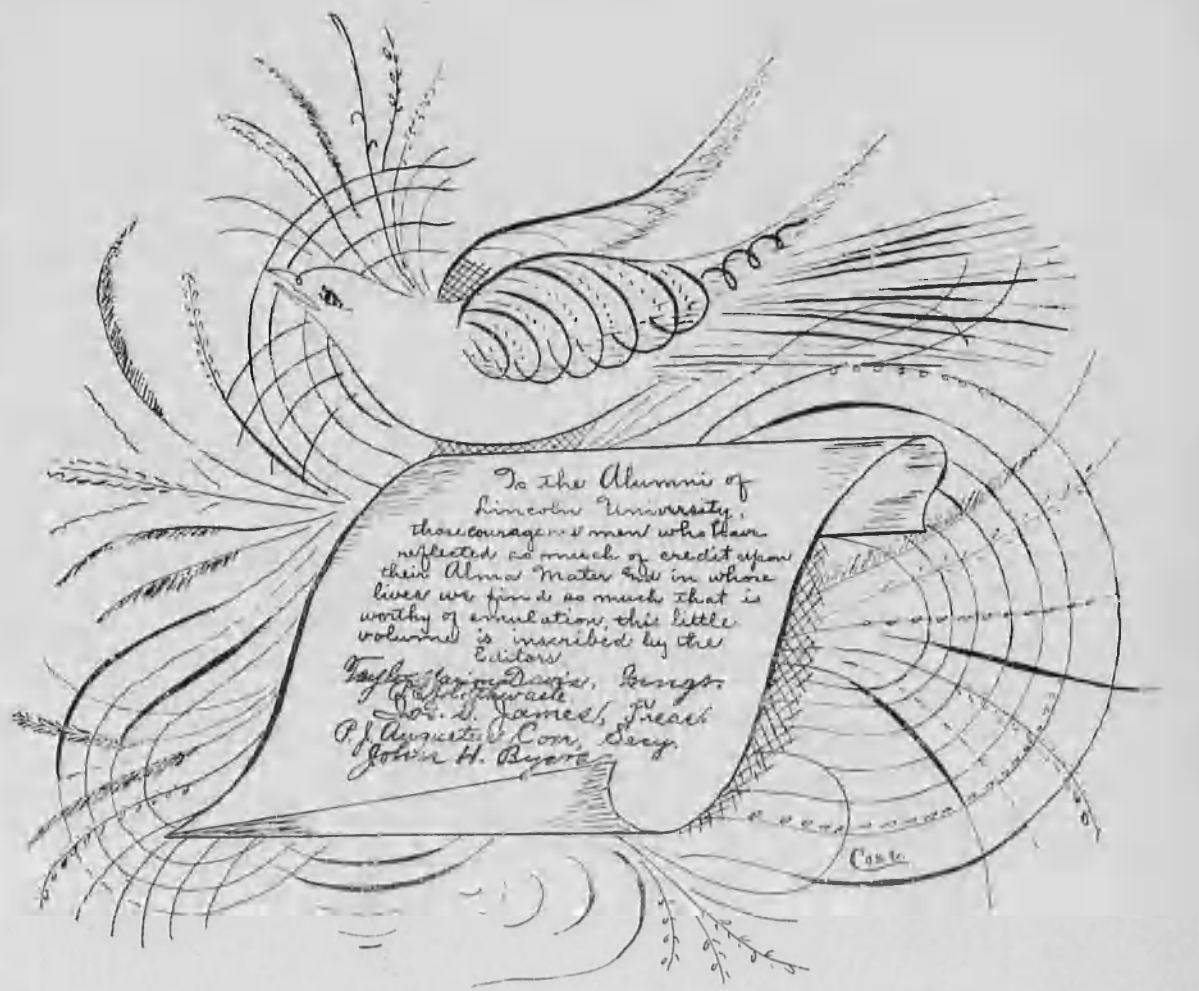 To the Alumni of
Lincoln University,
those courageous men who have
reflected so much of credit upon
their Alma Mater and in whose
lives we find so much that is
worthy of emulation, this little
volume is inscribed by the
Editors
Taylor Davis,
Jos. D. James, Treas.
P. J. Augustus Cox, Secy.
John H. Byard